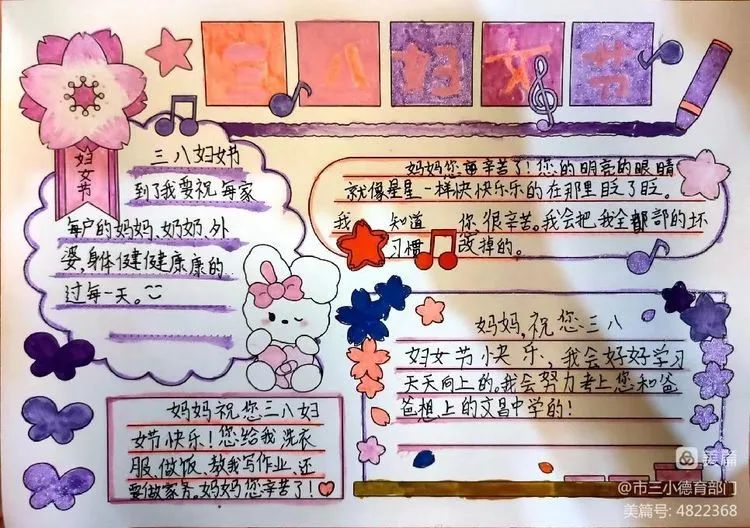 三八妇女节
妇女节
三八妇女节
到了我要祝每家
每户的妈妈、奶奶、外
婆,身体健健康康的
过每一天。
妈妈您辛苦了!您的明亮的眼睛
就像是星星一样快快乐乐的在那里眨了眨。
我 知道 您很辛苦。我会把我全部的坏
习惯 改掉的。
妈妈,祝您三八
妇女节快乐,我会好好学习
天天向上的。我会努力考上您和爸
爸想上的文昌中学的!
妈妈祝您三八妇
女节快乐!您给我洗衣
服、做饭、教我写作业、还
要做家务。妈妈您辛苦了!
美篇
@市三小德育部门
美篇号: 4822368